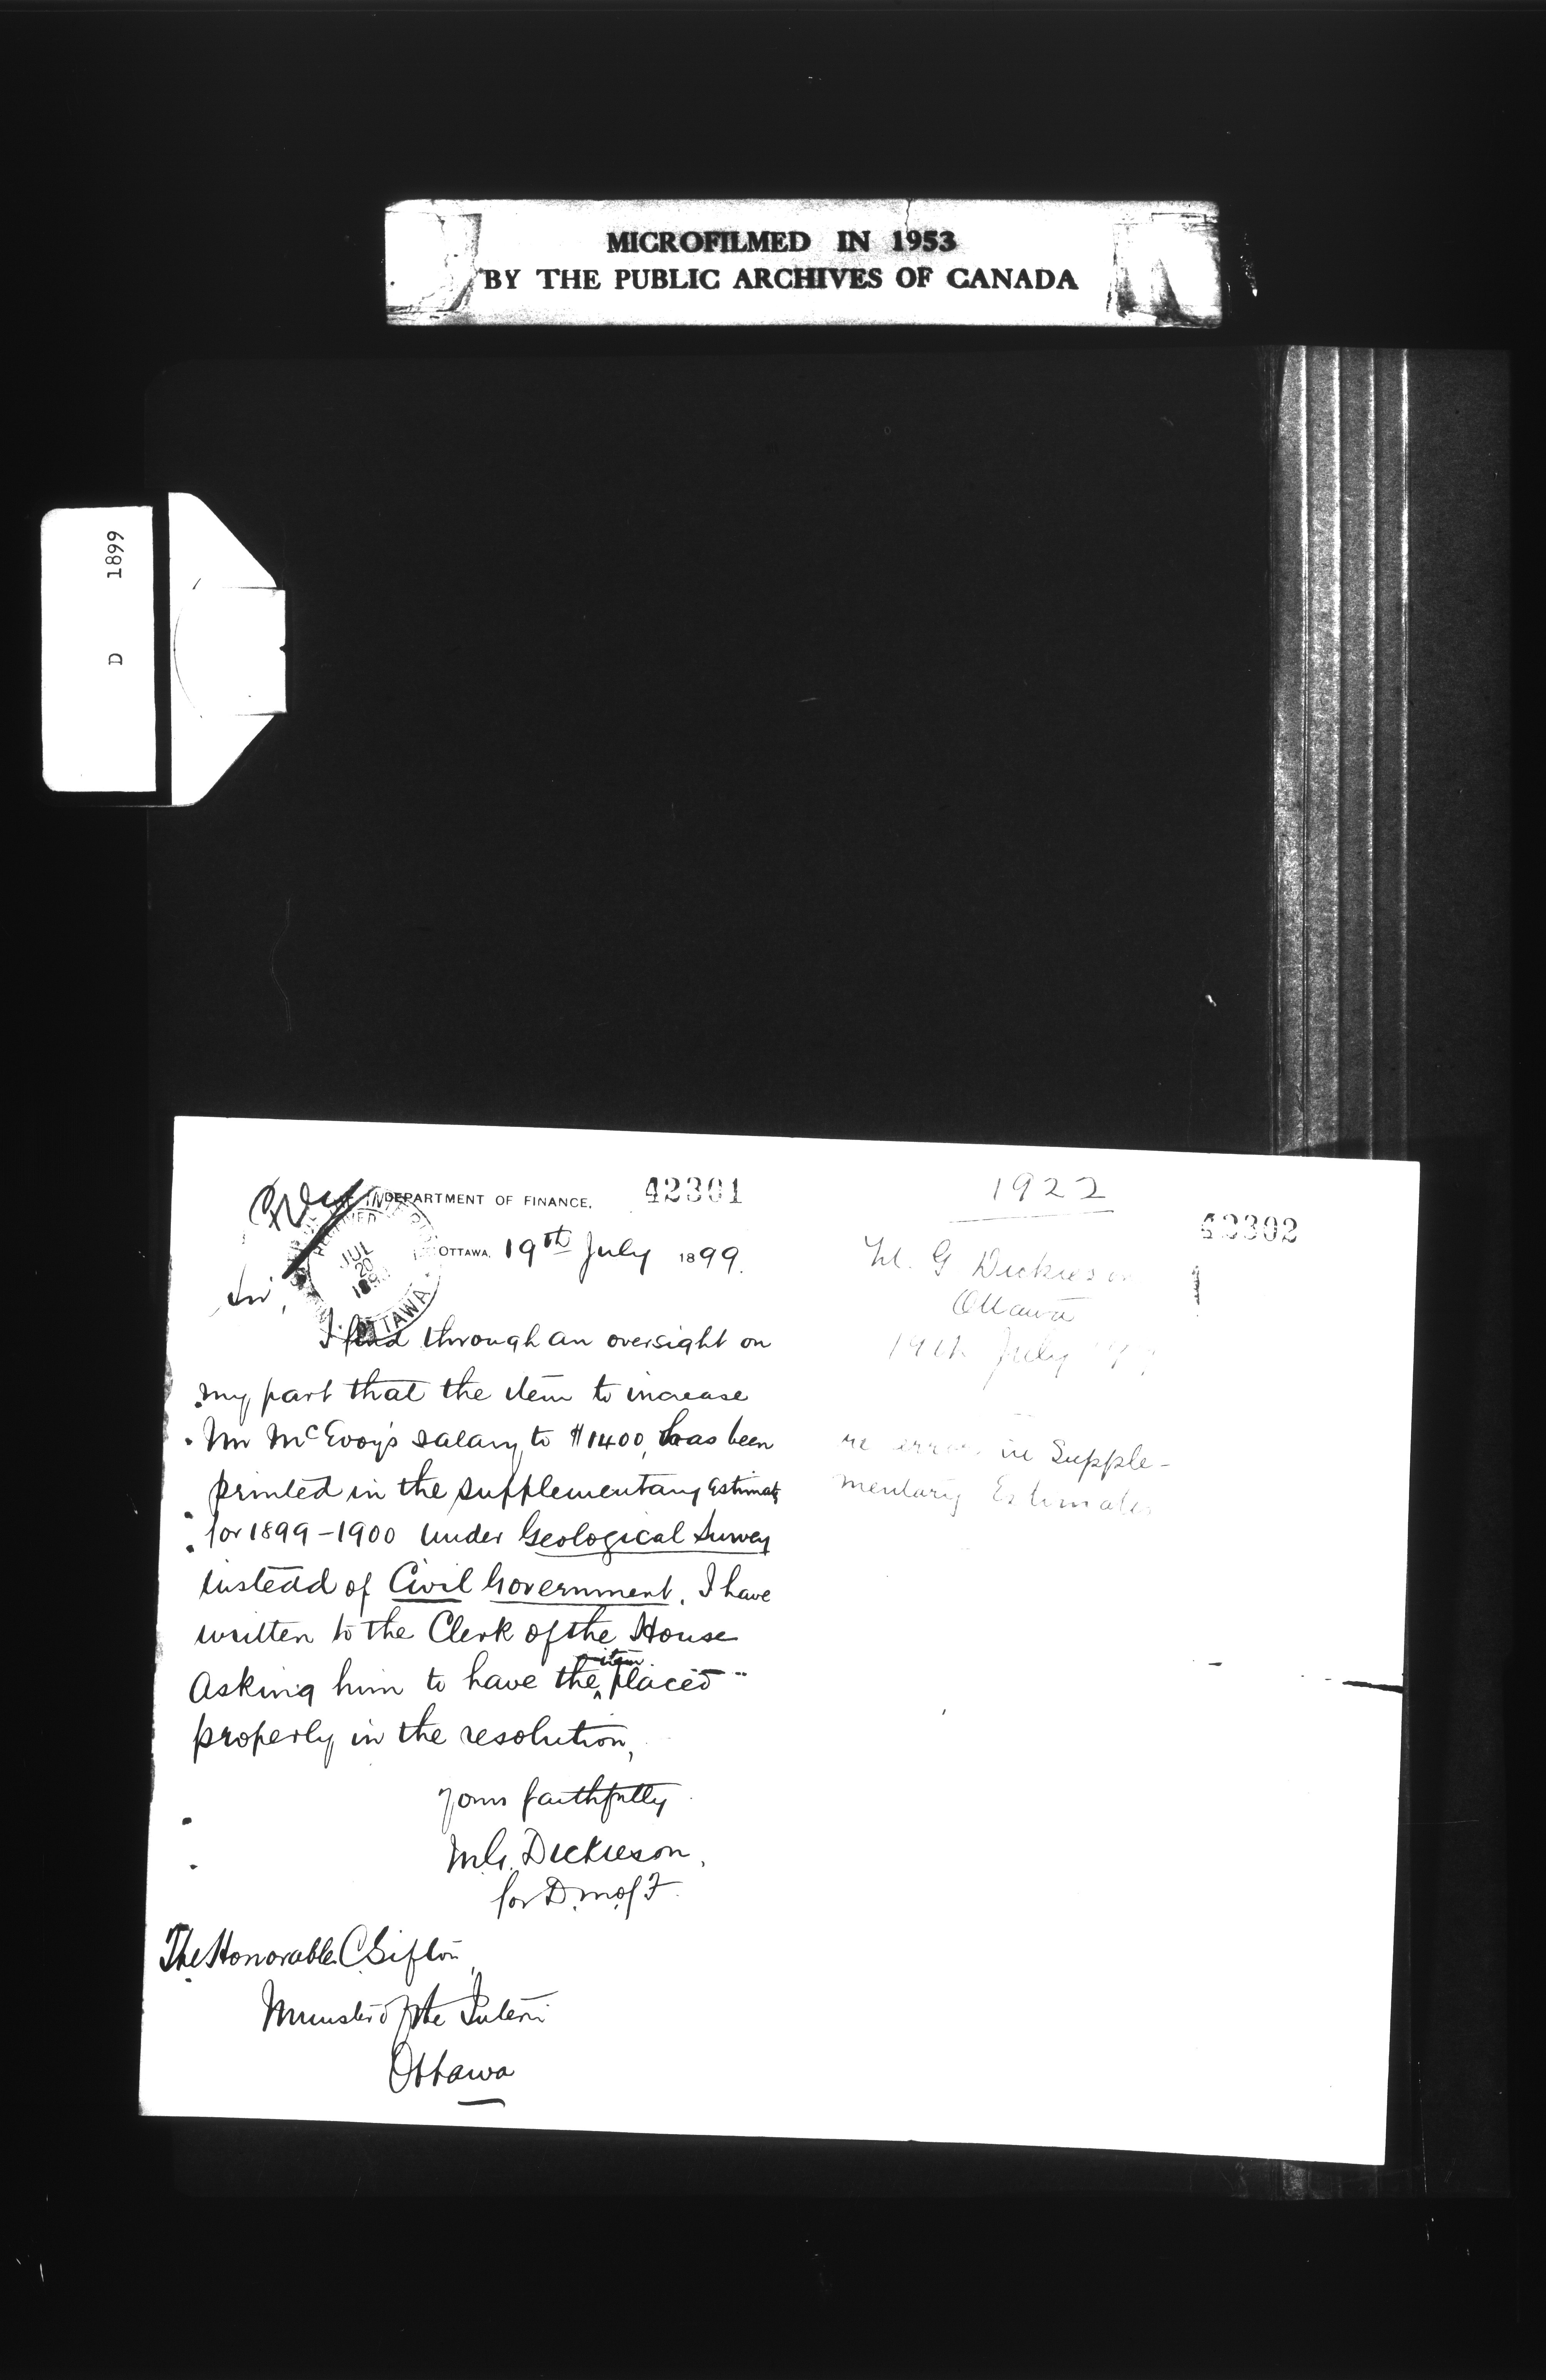 MICROFILMED IN 1953
BY THE PUBLIC ARCHIVES OF CANADA
D 1899
DEPARTMENT OF FINANCE,
42301
RECEIVED
JUL
20
189
OTTAWA
OTTAWA, 19th July 1899.
Sir,
I find through an oversight on
my part that the item to increase
Mr McEvoy's salary to $1400, has been
printed in the supplementary Estimates
for 1899-1900 under Geological Survey
instead of Civil Government. I have
written to the Clerk of the House
Asking him to have the item placed
properly in the resolution,
Yours faithfully
M.G. Dickieson,
for D.M. of F.
The Honorable C Sifton,
Minister of the Interior
Ottawa
1922
42302
M. G Dickieson
Ottawa
19th July
re error in Supple-
mentary Estimates